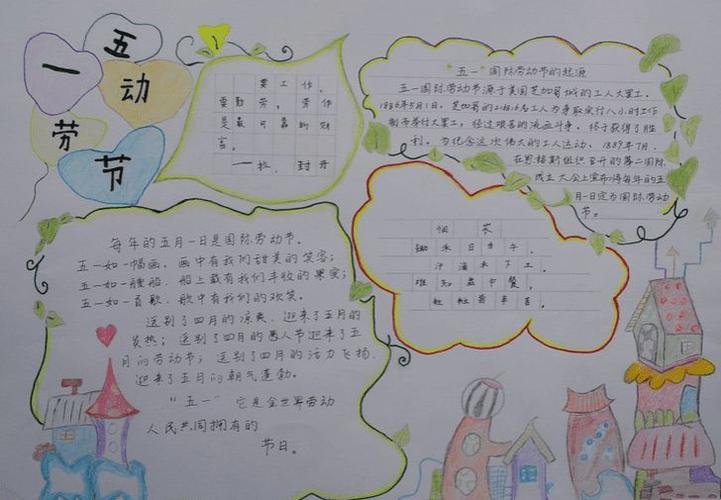 五
一
动
劳
节
要工作，
要勤劳，劳作
是最可靠的财
富。
——拉，封丹
"五一"国际劳动节的起源
五一国际劳动节源于美国芝加哥城的工人大罢工。
1886年5月1日，芝加哥的21.6万名工人为争取实行八小时工作
制而举行大罢工，经过艰苦的流血斗争，终于获得了胜
利。为纪念这次伟大的工人运动，1889年7月
在恩格斯组织召开的第二国际
成立大会上宣布将每年的五
月一日定为国际劳动
节。
悯农
锄禾日当午，
汗滴禾下土。
谁知盘中餐，
粒粒皆辛苦。
每年的五月一日是国际劳动节。
五一如一幅画，画中有我们甜美的笑容；
五一如一艘船，船上载有我们丰收的果实；
五一如一首歌，歌中有我们的欢笑。
送别了四月的凉爽，迎来了五月的
炎热；送别了四月的愚人节迎来了五
月的劳动节；送别了四月的活力飞扬，
迎来了五月的朝气蓬勃。
"五一"它是全世界劳动
人民共同拥有的
节日。